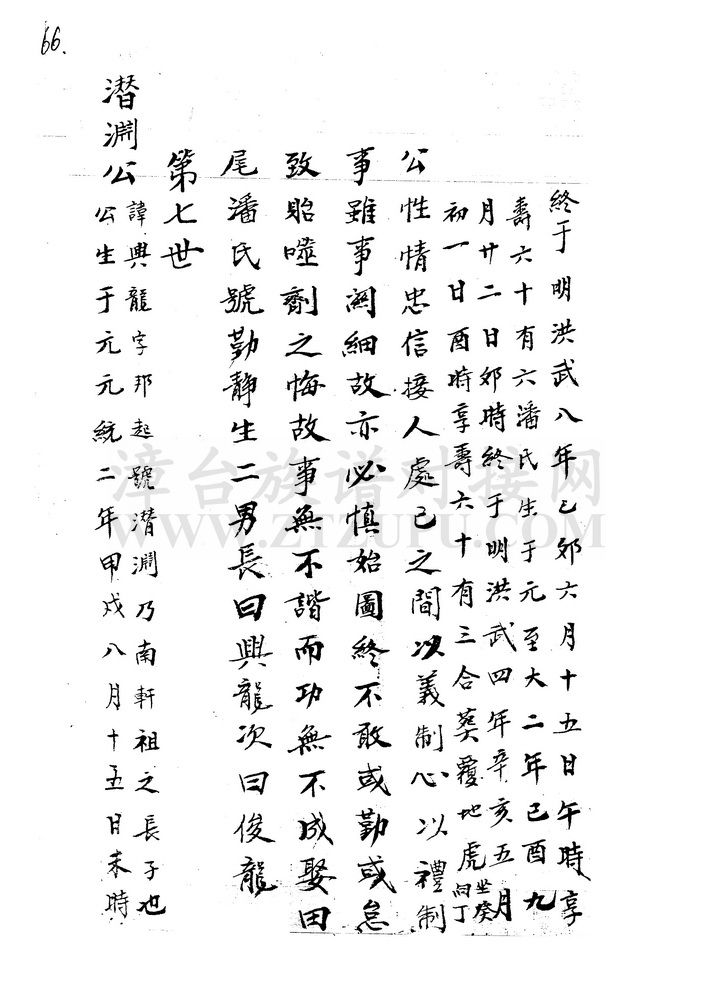 66.
終于明洪武八年乙卯六月十五日午時享
壽六十有六潘氏生于元至大二年己酉九
月廿二日卯時終于明洪武四年辛亥五月
初一日酉時享壽六十有三合葬覆地虎坐癸向丁
公性情忠信接人處己之間以義制心以禮制
事雖事闊細故亦必慎始圖終不敢或勤或怠
致貽噬劑之悔故事無不諧而功無不成娶田
尾潘氏號勤靜生二男長曰興龍次曰俊龍
第七世
潛淵公諱興龍字那起號潛淵乃南軒祖之長子也
公生于元元統二年甲戍八月十五日未時
漳台族谱对接网
WWW.ZTZUPU.COM